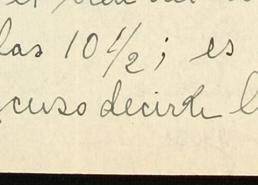 las 10 1/2; es
cuso decirte l